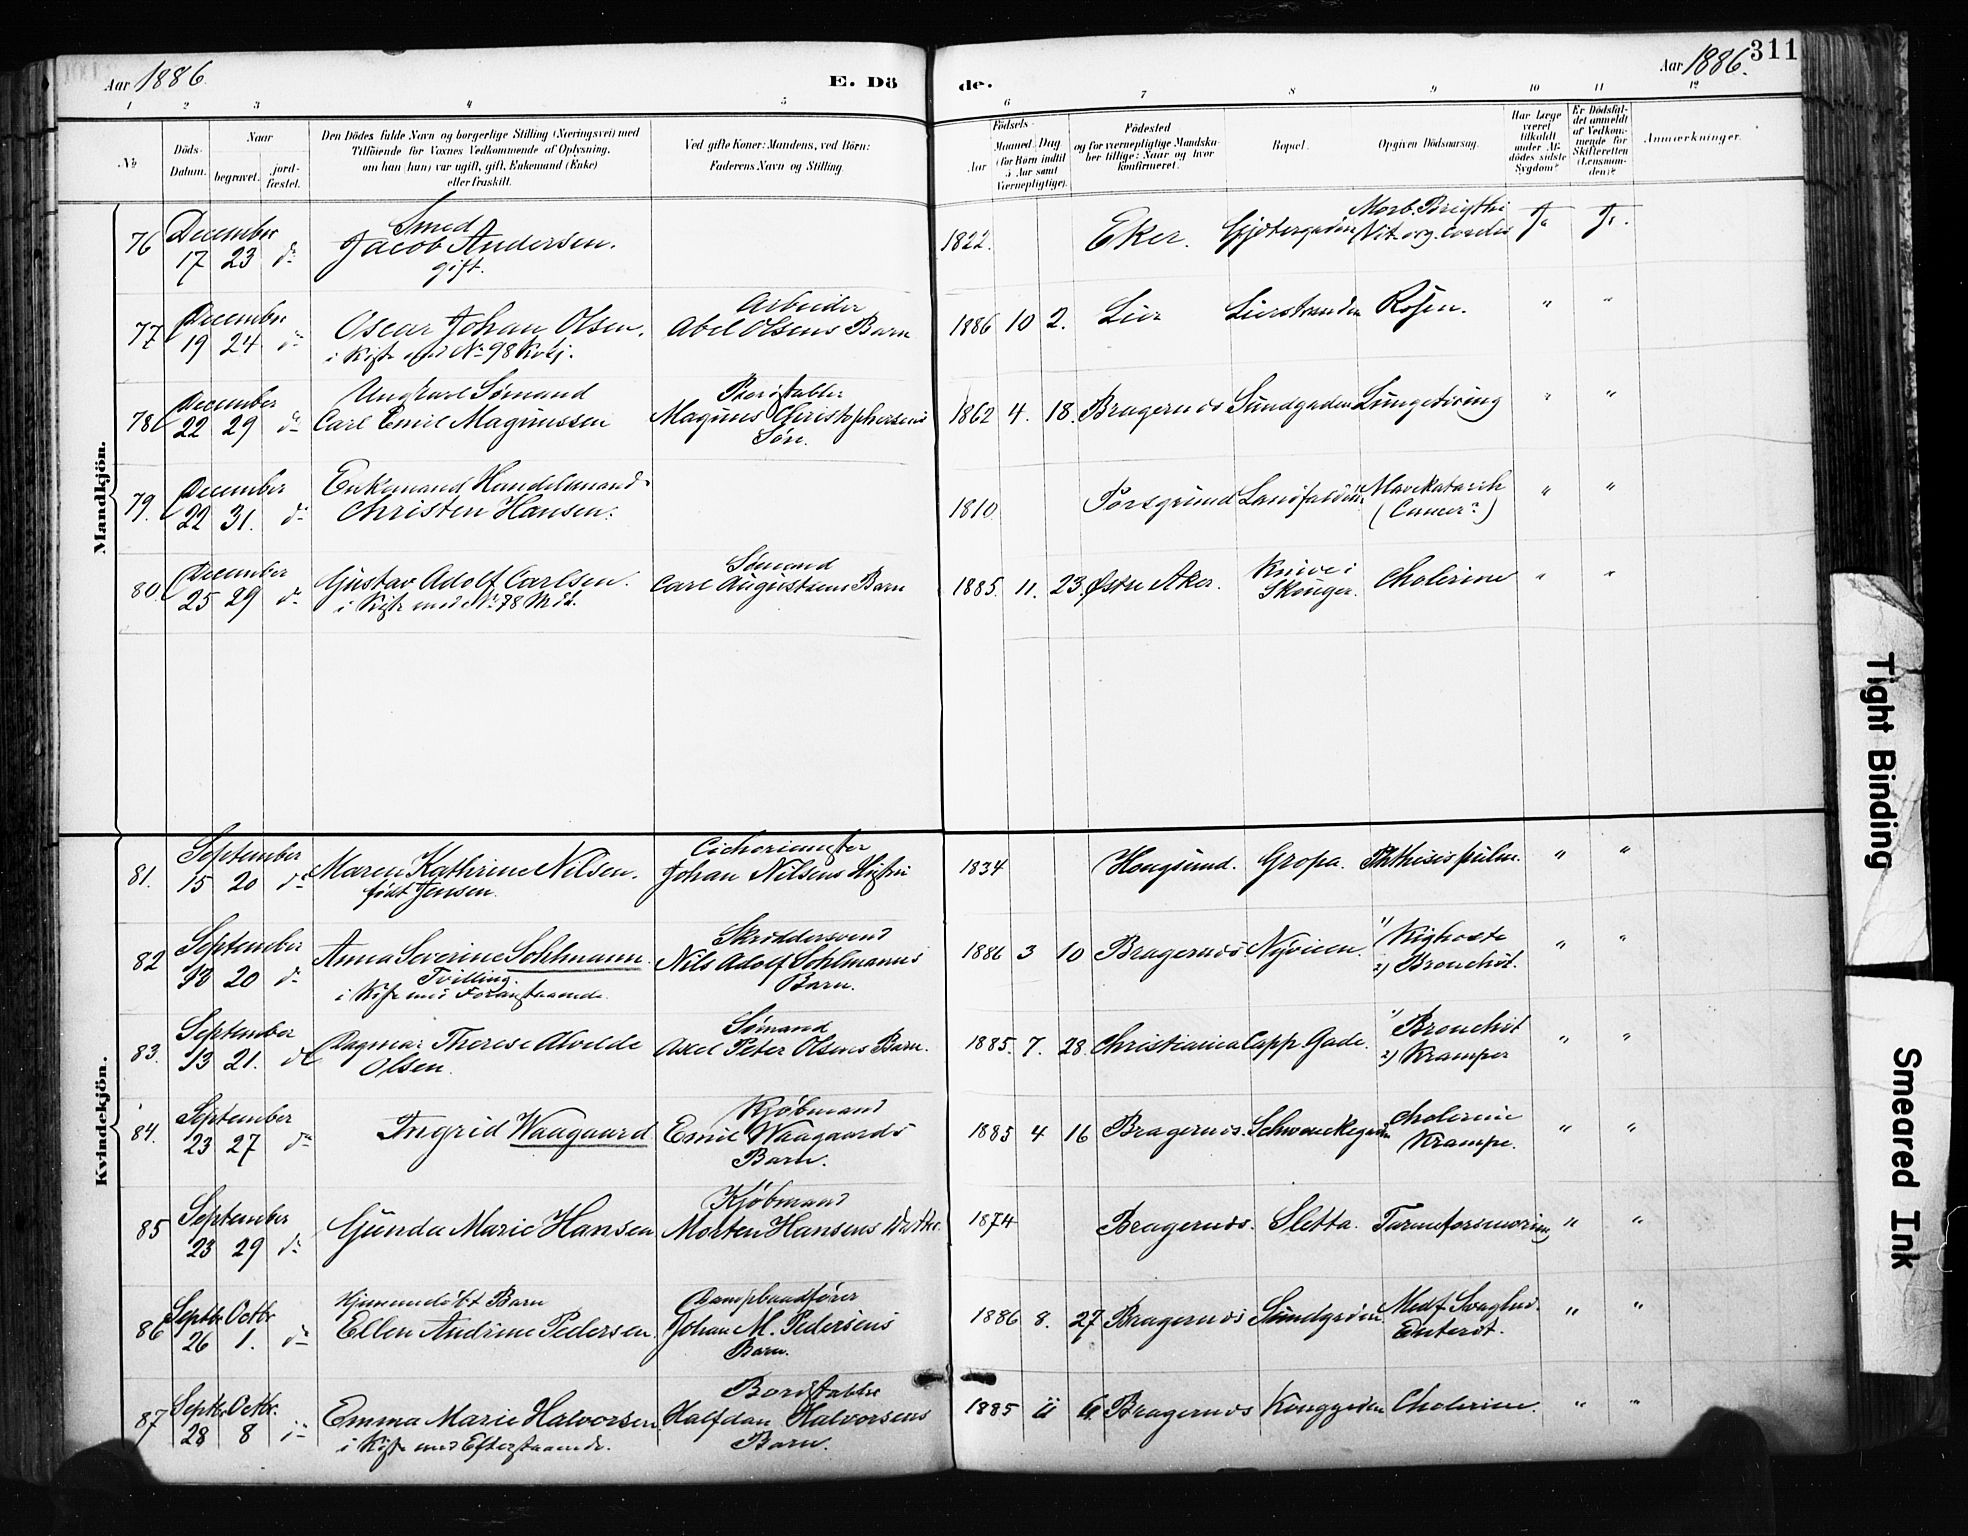 Aar 1886.
E. Dö
de.
Aar 1886.
311
1 2 3 4 5 6 7 8 9 10 11 12
No
Döds-Datum.
Naar
begravet.
jord-fæstet.
Den Dödes fulde Navn og borgerlige Stilling (Næringsvei) med
Tilföiende for Voxnes Vedkommende af Oplysning,
om han (hun) var ugift, gift, Enkemand (Enke)
eller fraskilt.
Ved gifte Koner: Mandens, ved Börn:
Faderens Navn og Stilling.
Födsels-
Aar
Maaned. Dag
(for Börn indtil
5 Aar samt
Værnepligtige).
Födested
og for værnepligtige Mandska-
ber tillige: Naar og hvor
konfirmeret.
Bopæl.
Opgiven Dödsaarsag.
Har Læge
været
tilkaldt
under Af-
dödes sidste
Sygdom?
Er Dödsfal-
det anmeldt
af Vedkom-
mende for
Skifteretten
(Lensman-
den)?
Anmærkninger.
Mandkjön.
76 December 17 23 do Smed
Jacob Andersen.
gift.
1822. Eker. Morb. Brigthi
Vit. org. cordis Ja Ja.
77 December 19 24 do Oscar Johan Olsen.
i Kiste med No 98 Kvkj.
Arbeider
Abel Olsens Barn
1886 10 2. Lier Lierstranden Rosen. " "
78 December 22 29 do Ungkarl Sømand
Carl Emil Magnussen
Bordstabler
Magnus Christophersens
Søn.
1862 4. 18. Bragernæs Sundgaden Lungetæring " "
79. December 22 31. do Enkemand Handelsmand
Christen Hansen.
1810 Porsgrund Landfaldøen Mavekatarrh
(Cancer?) " "
80. December 25 29 do Gustav Adolf Carlsen.
i Kiste med No 78 Mdk.
Sømand
Carl Augustsens Barn
1885. 11. 23. Østre Aker. Knive i
Skouger. Cholerine " "
Kvindekjön.
81. September 15 20 do Maren Kathrine Nilsen.
født Jensen.
Cichoriemester
Johan Nilsens Hustru
1834 Hougsund. Gropa. Phthisis pulm. " "
82 September 18 20 do Anna Severine Sohlmann.
Tvilling.
i Kiste med Foranstaaende.
Skræddersvend
Nils Adolf Sohlmanns
Barn.
1886 3 10 Bragernæs Nyveien. 1) Kighoste
2) Bronchit. " "
83. September 13 21. do Dagmar Therese Alvelde
Olsen.
Sømand
Axel Peter Olsens Barn.
1885. 7. 28. Christiania Capp. Gade. 1) Bronchit
2) Kramper " "
84. September 23 27 do Ingrid Waagaard
Kjøbmand
Emil Waagaards
Barn.
1885 4 16 Bragernæs. Schwenckegaden Cholerine
Krampe. " "
85 September 23 29 do Gunda Marie Hansen
Kjøbmand
Morten Hansens Datter
1874 Bragernæs. Sletta. " "
86 Septbr. 26 Octbr. 1. do Hjemmedøbt Barn
Ellen Andrine Pedersen.
Dampbaadfører
Johan M. Pedersens
Barn.
1886 8. 27 Bragernæs Sundgaden. Medf. Svaghed.
Enterit. " "
87 Septbr. 28 Octbr. 8 Emma Marie Halvorsen.
i Kiste med Efterstaaende.
Bordstabler
Halfdan Halvorsens
Barn.
1885 11 6. Bragernæs Konggaden Cholerine. " "
Tight Binding
Smeared Ink